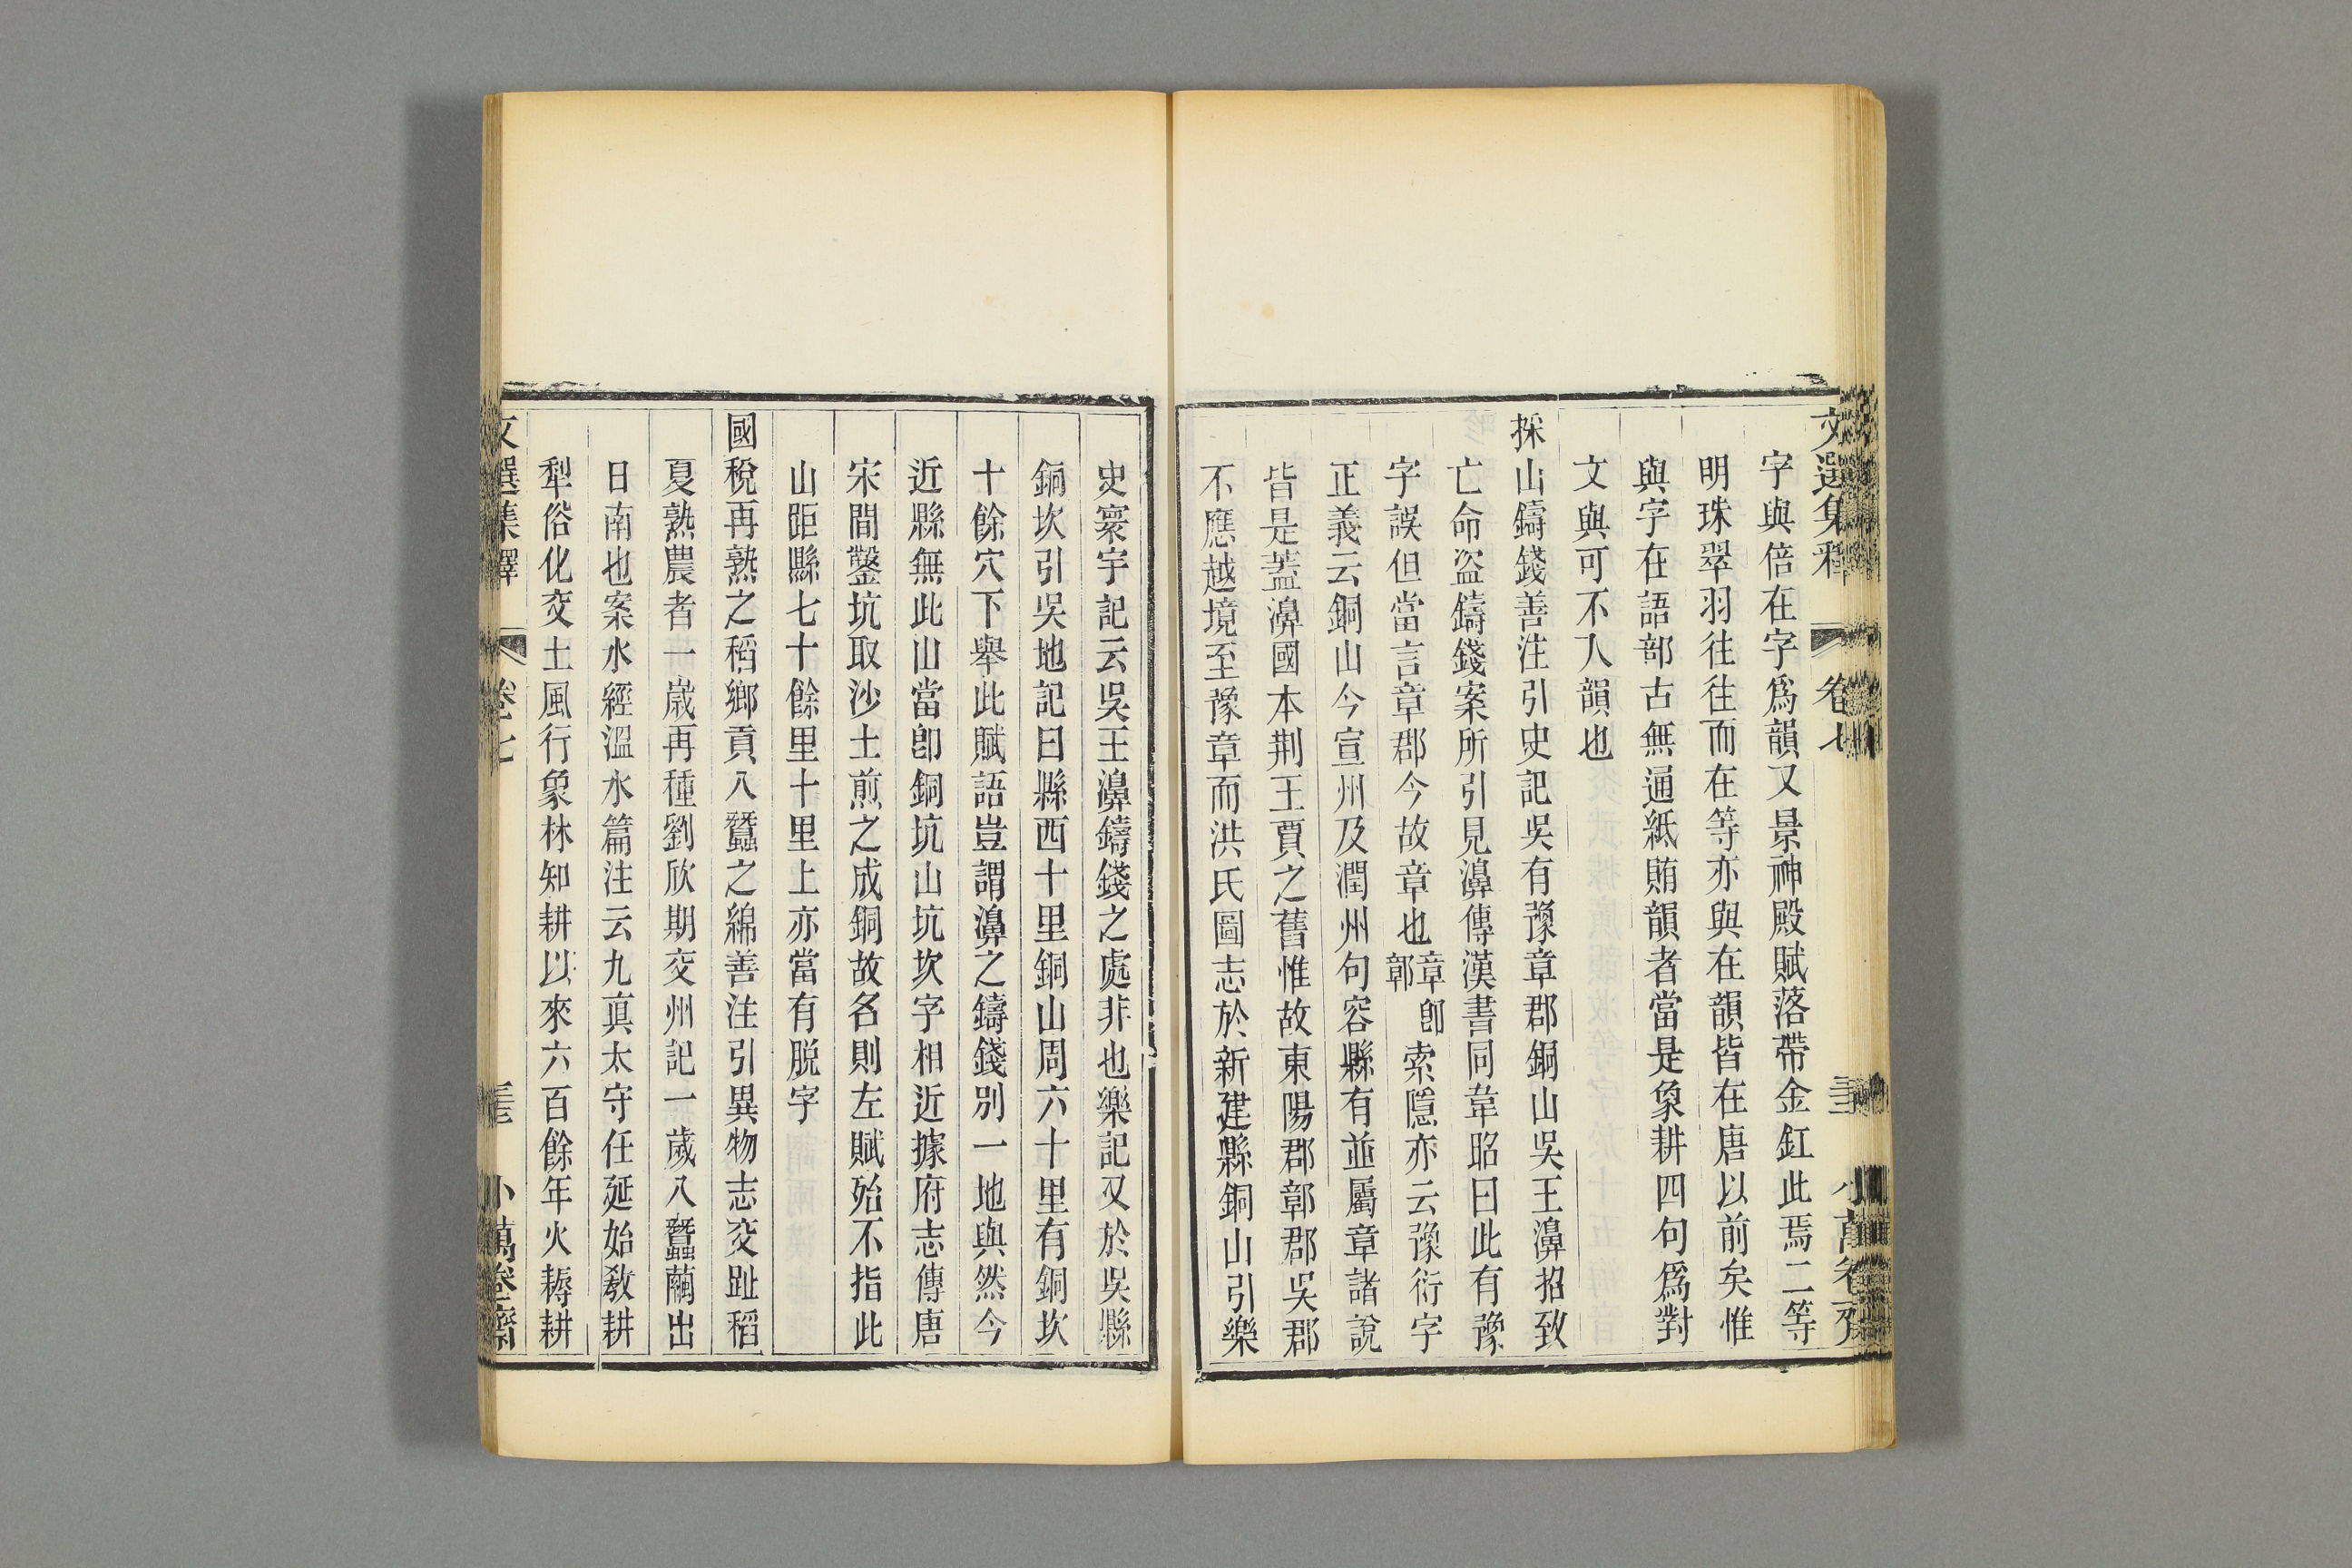 文選集釋 卷七 小萬卷齋
字與倍在字爲韻又景神殿賦落帶金釭此焉二等
明珠翠羽往往而在等亦與在韻皆在唐以前矣惟
與字在語部古無通紙賄韻者當是象耕四句爲對
文與可不入韻也
採山鑄錢善注引史記吳有豫章郡銅山吳王濞招致
亡命盜鑄錢案所引見濞傳漢書同韋昭曰此有豫
字誤但當言章郡今故章也章卽鄣索隱亦云豫衍字
正義云銅山今宣州及潤州句容縣有並屬章諸說
皆是蓋濞國本荆王賈之舊惟故東陽郡鄣郡吳郡
不應越境至豫章而洪氏圖志於新建縣銅山引樂
史寰宇記云吳王濞鑄錢之處非也樂記又於吳縣
銅坎引吳地記曰縣西十里銅山周六十里有銅坎
十餘穴下舉此賦語豈謂濞之鑄錢別一地與然今
近縣無此山當卽銅坑山坑坎字相近據府志傳唐
宋間鑿坑取沙土煎之成銅故名則左賦殆不指此
山距縣七十餘里十里上亦當有脱字
國稅再熟之稻鄉貢八蠶之綿善注引異物志交趾稻
夏熟農者一歲再種劉欣期交州記一歲八蠶繭出
日南也案水經溫水篇注云九眞太守任延始敎耕
犁俗化交土風行象林知耕以來六百餘年火耨耕
文選集釋 卷七 小萬卷齋